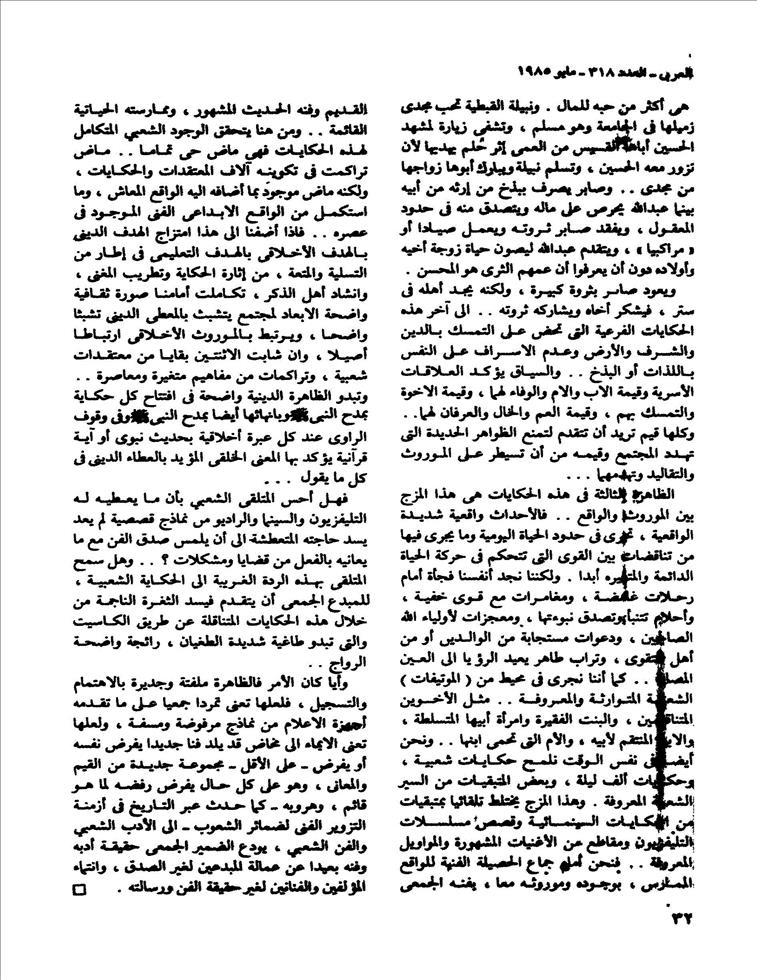 العربى ـ العدد ٣١٨ ـ مايو ١٩٨٥
هى أكثر من حبه للمال . ونبيلة القبطية تحب مجدى
زميلها فى الجامعة وهو مسلم ، وتشفى زيارة لمشهد
الحسين أباها القسيس من العمى إثر حلم يهديها لأن
تزور معه الحسين ، وتسلم نبيلة ويبارك أبوها زواجها
من مجدى . . وصابر يصرف ببذخ من إرثه من أبيه
بينما عبدالله يحرص على ماله ويتصدق منه فى حدود
المعقول ، ويفقد صابر ثروته ويعمل صيادا أو
« مراكبيا » ، ويتقدم عبدالله ليصون حياة زوجة أخيه
وأولاده دون أن يعرفوا أن عمهم الثرى هو المحسن .
ويعود صابر بثروة كبيرة ، ولكنه يجد أهله فى
ستر ، فيشكر أخاه ويشاركه ثروته . . الى آخر هذه
الحكايات الفرعية التى تحض على التمسك بالدين
والشرف والأرض وعدم الاسراف على النفس
باللذات أو البذخ . . والسياق يؤكد العلاقات
الأسرية وقيمة الاب والام والوفاء لهما ، وقيمة الاخوة
والتمسك بهم ، وقيمة العم والخال والعرفان لهما . .
وكلها قيم تريد أن تتقدم لتمنع الظواهر الجديدة التى
تهدد المجتمع وقيمه من أن تسيطر على الموروث
والتقاليد وتهدمها . . .
الظاهرة الثالثة فى هذه الحكايات هى هذا المزج
بين الموروث والواقع . . فالأحداث واقعية شديدة
الواقعية ، تجرى فى حدود الحياة اليومية وما يجرى فيها
من تناقضات بين القوى التى تتحكم فى حركة الحياة
الدائمة والمتغيره أبدا . ولكننا نجد أنفسنا فجأة أمام
رحلات غامضة ، ومغامرات مع قوى خفية ،
وأحلام تتنبأ وتصدق نبوءتها ، ومعجزات لأولياء الله
الصالحين ، ودعوات مستجابة من الوالدين أو من
أهل التقوى ، وتراب طاهر يعيد الرؤيا الى العين
المصابة . . كما أننا نجرى فى محيط من ( الموتيفات )
الشعبية المتوارثة والمعروفة . . مثل الأخوين
المتناقضين ، والبنت الفقيرة وامرأة أبيها المتسلطة ،
والابن المنتقم لأبيه ، والأم التى تحمى ابنها . . ونحن
أيضا فى نفس الوقت نلمح حكايات شعبية ،
وحكايات ألف ليلة ، وبعض المتبقيات من السير
الشعبية المعروفة . وهذا المزج يختلط تلقائيا بمتبقيات
من الحكايات السينمائية وقصص مسلسلات
التليفزيون ومقاطع من الأغنيات المشهورة والمواويل
المعروفة . . فنحن أمام جماع الحصيلة الفنية للواقع
الممارس ، بوجوده وموروثه معا ، يفنه الجمعى
القديم وفنه الحديث المشهور ، وممارسته الحياتية
القائمة . . ومن هنا يتحقق الوجود الشعبي المتكامل
لهذه الحكايات فهي ماض حى تماما . . ماض
تراكمت فى تكوينه آلاف المعتقدات والحكايات ،
ولكنه ماض موجود بما أضافه اليه الواقع المعاش ، وما
استكمل من الواقع الابداعى الفنى الموجود فى
عصره . . فاذا أضفنا الى هذا امتزاج الهدف الدينى
بالهدف الأخلاقى بالهدف التعليمى فى إطار من
التسلية والمتعة ، من إثارة الحكاية وتطريب المغنى ،
وانشاد أهل الذكر ، تكاملت أمامنا صورة ثقافية
واضحة الابعاد لمجتمع يتشبث بالمعطى الدينى تشبثا
واضحا ، ويرتبط بالموروث الأخلاقى ارتباطا
أصيلا ، وان شابت الاثنتين بقايا من معتقدات
شعبية ، وتراكمات من مفاهيم متغيرة ومعاصرة . .
وتبدو الظاهرة الدينية واضحة فى افتتاح كل حكاية
بمدح النبى ﷺ وبانهائها أيضا بمدح النبى ﷺ وفى وقوف
الراوى عند كل عبرة أخلاقية بحديث نبوى أو آية
قرآنية يؤكد بها المعنى الخلقى المؤيد بالعطاء الدينى فى
كل ما يقول . . .
فهل أحس المتلقى الشعبي بأن ما يعطيه له
التليفزيون والسينما والراديو من نماذج قصصية لم يعد
يسد حاجته المتعطشة الى أن يلمس صدق الفن مع ما
يعانيه بالفعل من قضايا ومشكلات ؟ . . وهل سمح
المتلقى بهذه الردة الغريبة الى الحكاية الشعبية ،
للمبدع الجمعى أن يتقدم فيسد الثغرة الناجمة من
خلال هذه الحكايات المتناقلة عن طريق الكاسيت
والتى تبدو طاغية شديدة الطغيان ، رائجة واضحة
الرواج . .
وأيا كان الأمر فالظاهرة ملفتة وجديرة بالاهتمام
والتسجيل ، فلعلها تعنى تمردا جمعيا على ما تقدمه
أجهزة الاعلام من نماذج مرفوضة ومسفة ، ولعلها
تعنى الايماء الى مخاض قد يلد فنا جديدا يفرض نفسه
أو يفرض ـ على الأقل ـ مجموعة جديدة من القيم
والمعانى ، وهو على كل حال يفرض رفضه لما هو
قائم ، وهروبه ـ كما حدث عبر التاريخ فى أزمنة
التزوير الفنى لضمائر الشعوب ـ الى الأدب الشعبي
والفن الشعبي ، يودع الضمير الجمعى حقيقة أدبه
وفنه بعيدا عن عمالة المبدعين لغير الصدق ، وانتماء
المؤلفين والفنانين لغير حقيقة الفن ورسالته .
٣٢